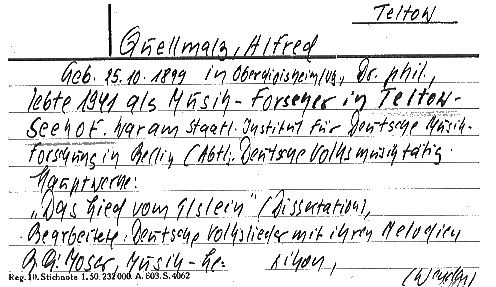 Teltow
Quellmalz, Alfred
Geb. 25.10.1899 in Oberdigisheim/Wg, Dr. phil,
lebte 1941 als Musik-Forscher in Teltow-
Seehof. War am Staatl. Institut für Deutsche Musik-
forschung in Berlin (Abtl. Deutsche Volksmusik tätig.
Hauptwerke:
„Das Lied vom Elslein" (Dissertation),
Bearbeitete: Deutsche Volkslieder mit ihren Melodien
Moser, Musik-Le: xikon,
Reg. 10. Stichnote 1. 50. 232000. A. 803. S. 4062